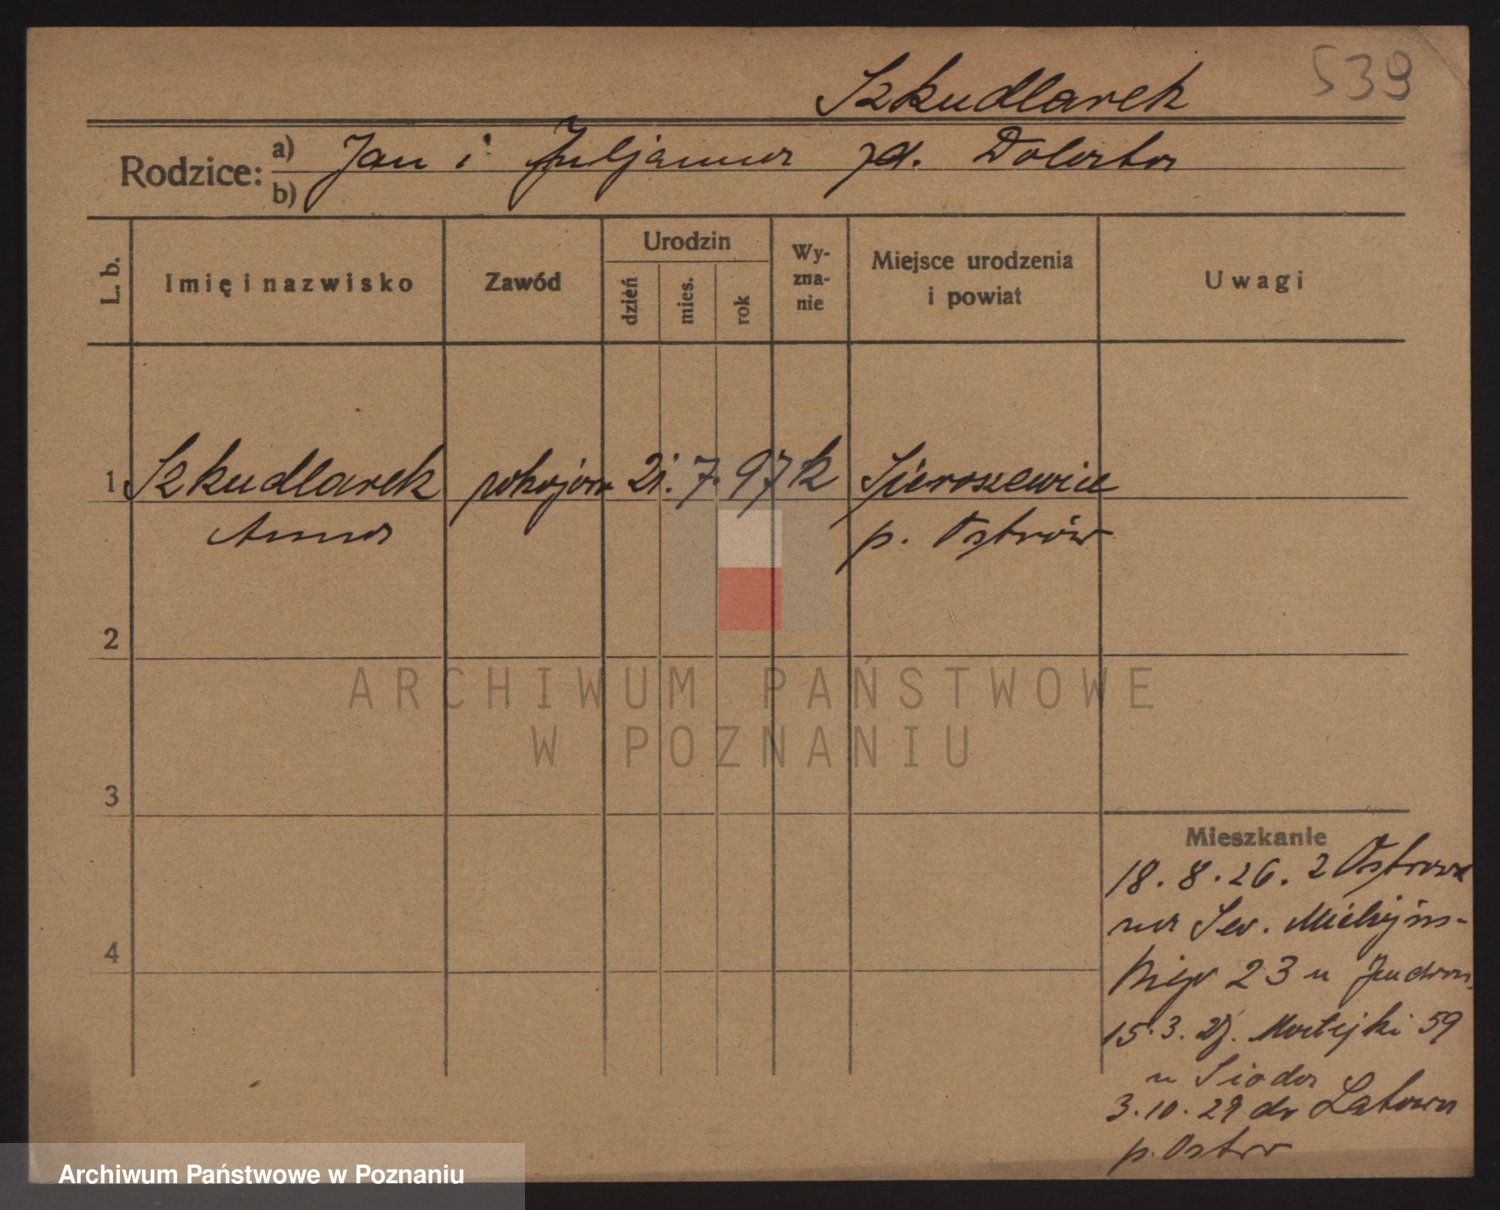 539
Szkudlarek
Rodzice: a) Jan i Juljanna zd. Dolata
b)
L. b. Imię i nazwisko Zawód Urodzin dzień mies. rok Wy-zna-nie Miejsce urodzenia i powiat Uwagi
1 Szkudlarek pokojow 21. 7. 97 k Sieroszewice
Anna p. Ostrów
2
ARCHIWUM PAŃSTWOWE
W POZNANIU
3
Mieszkanie
18. 8. 26. z Ostrowa
na Sew. Mielżyńs-
kiego 23 u
4
15. 3. 27. Matejki 59
u
3. 10. 29 do
p. Ostr
Archiwum Państwowe w Poznaniu